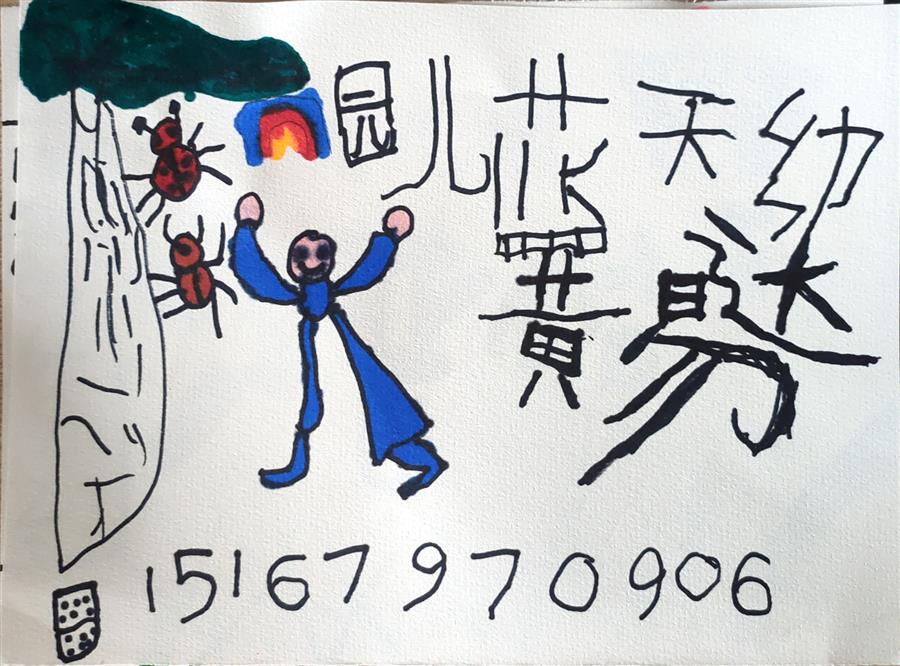 幼天花儿园
黄
15167970906